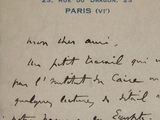 25, RUE DU DRAGON, 25
PARIS (VIᵉ)
Mon cher ami,
Un petit travail qui va
par l'Institut du Caire
quelques lectures de détail
Égypte